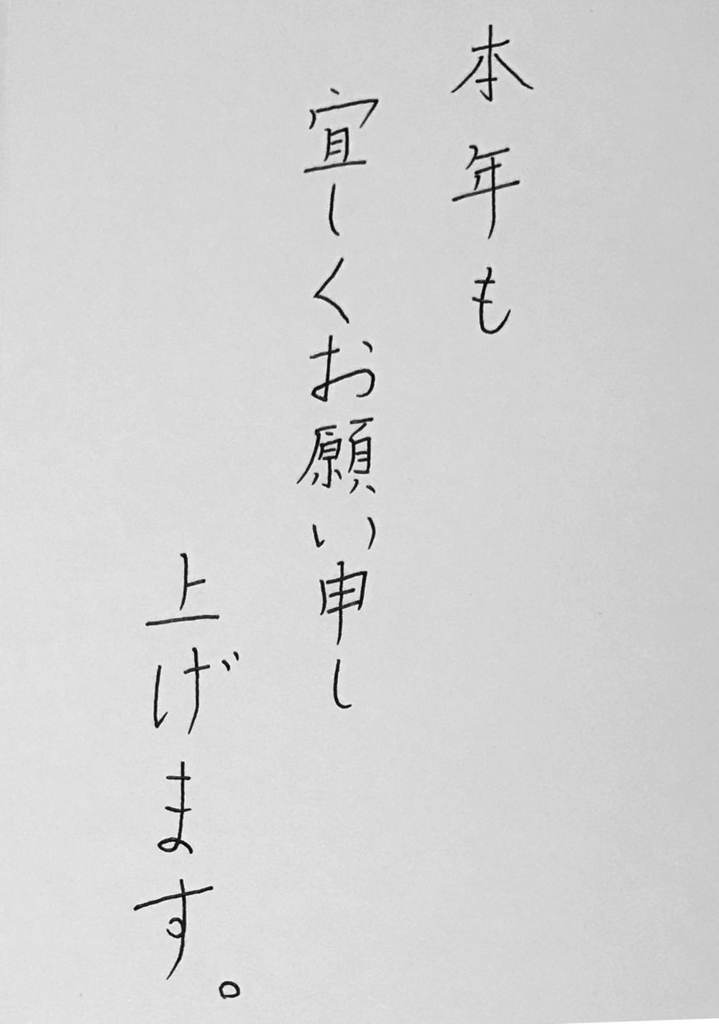 本年も
宜しくお願い申し
上げます。